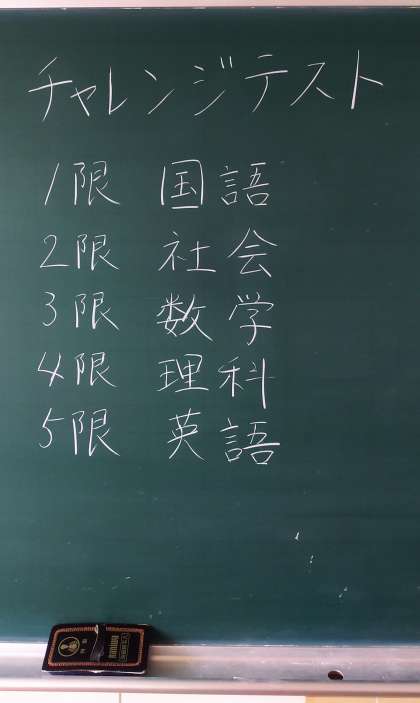 チャレンジテスト
1限 国語
2限 社会
3限 数学
4限 理科
5限 英語